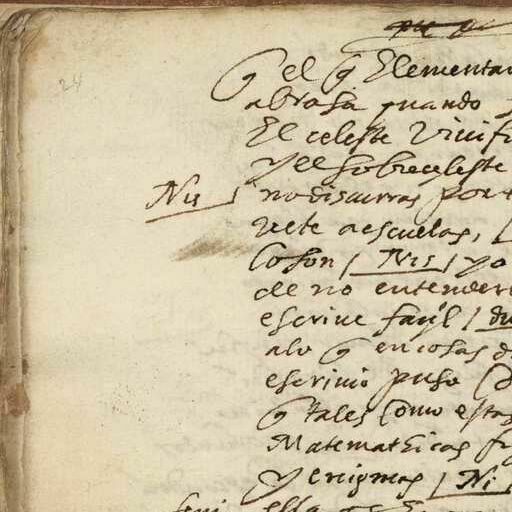 24
q el q Elementar
abrasa quando
El celeste Vivifi
y el sobreceleste
Nis no discurras por
vete a escuelas,
Coson / Nis / yo
de no entender
escrive fayl / du
alo q en cosas d
escrivio puso Co
q tales Como estas
Mathematicas fu
y enigmas / Ni